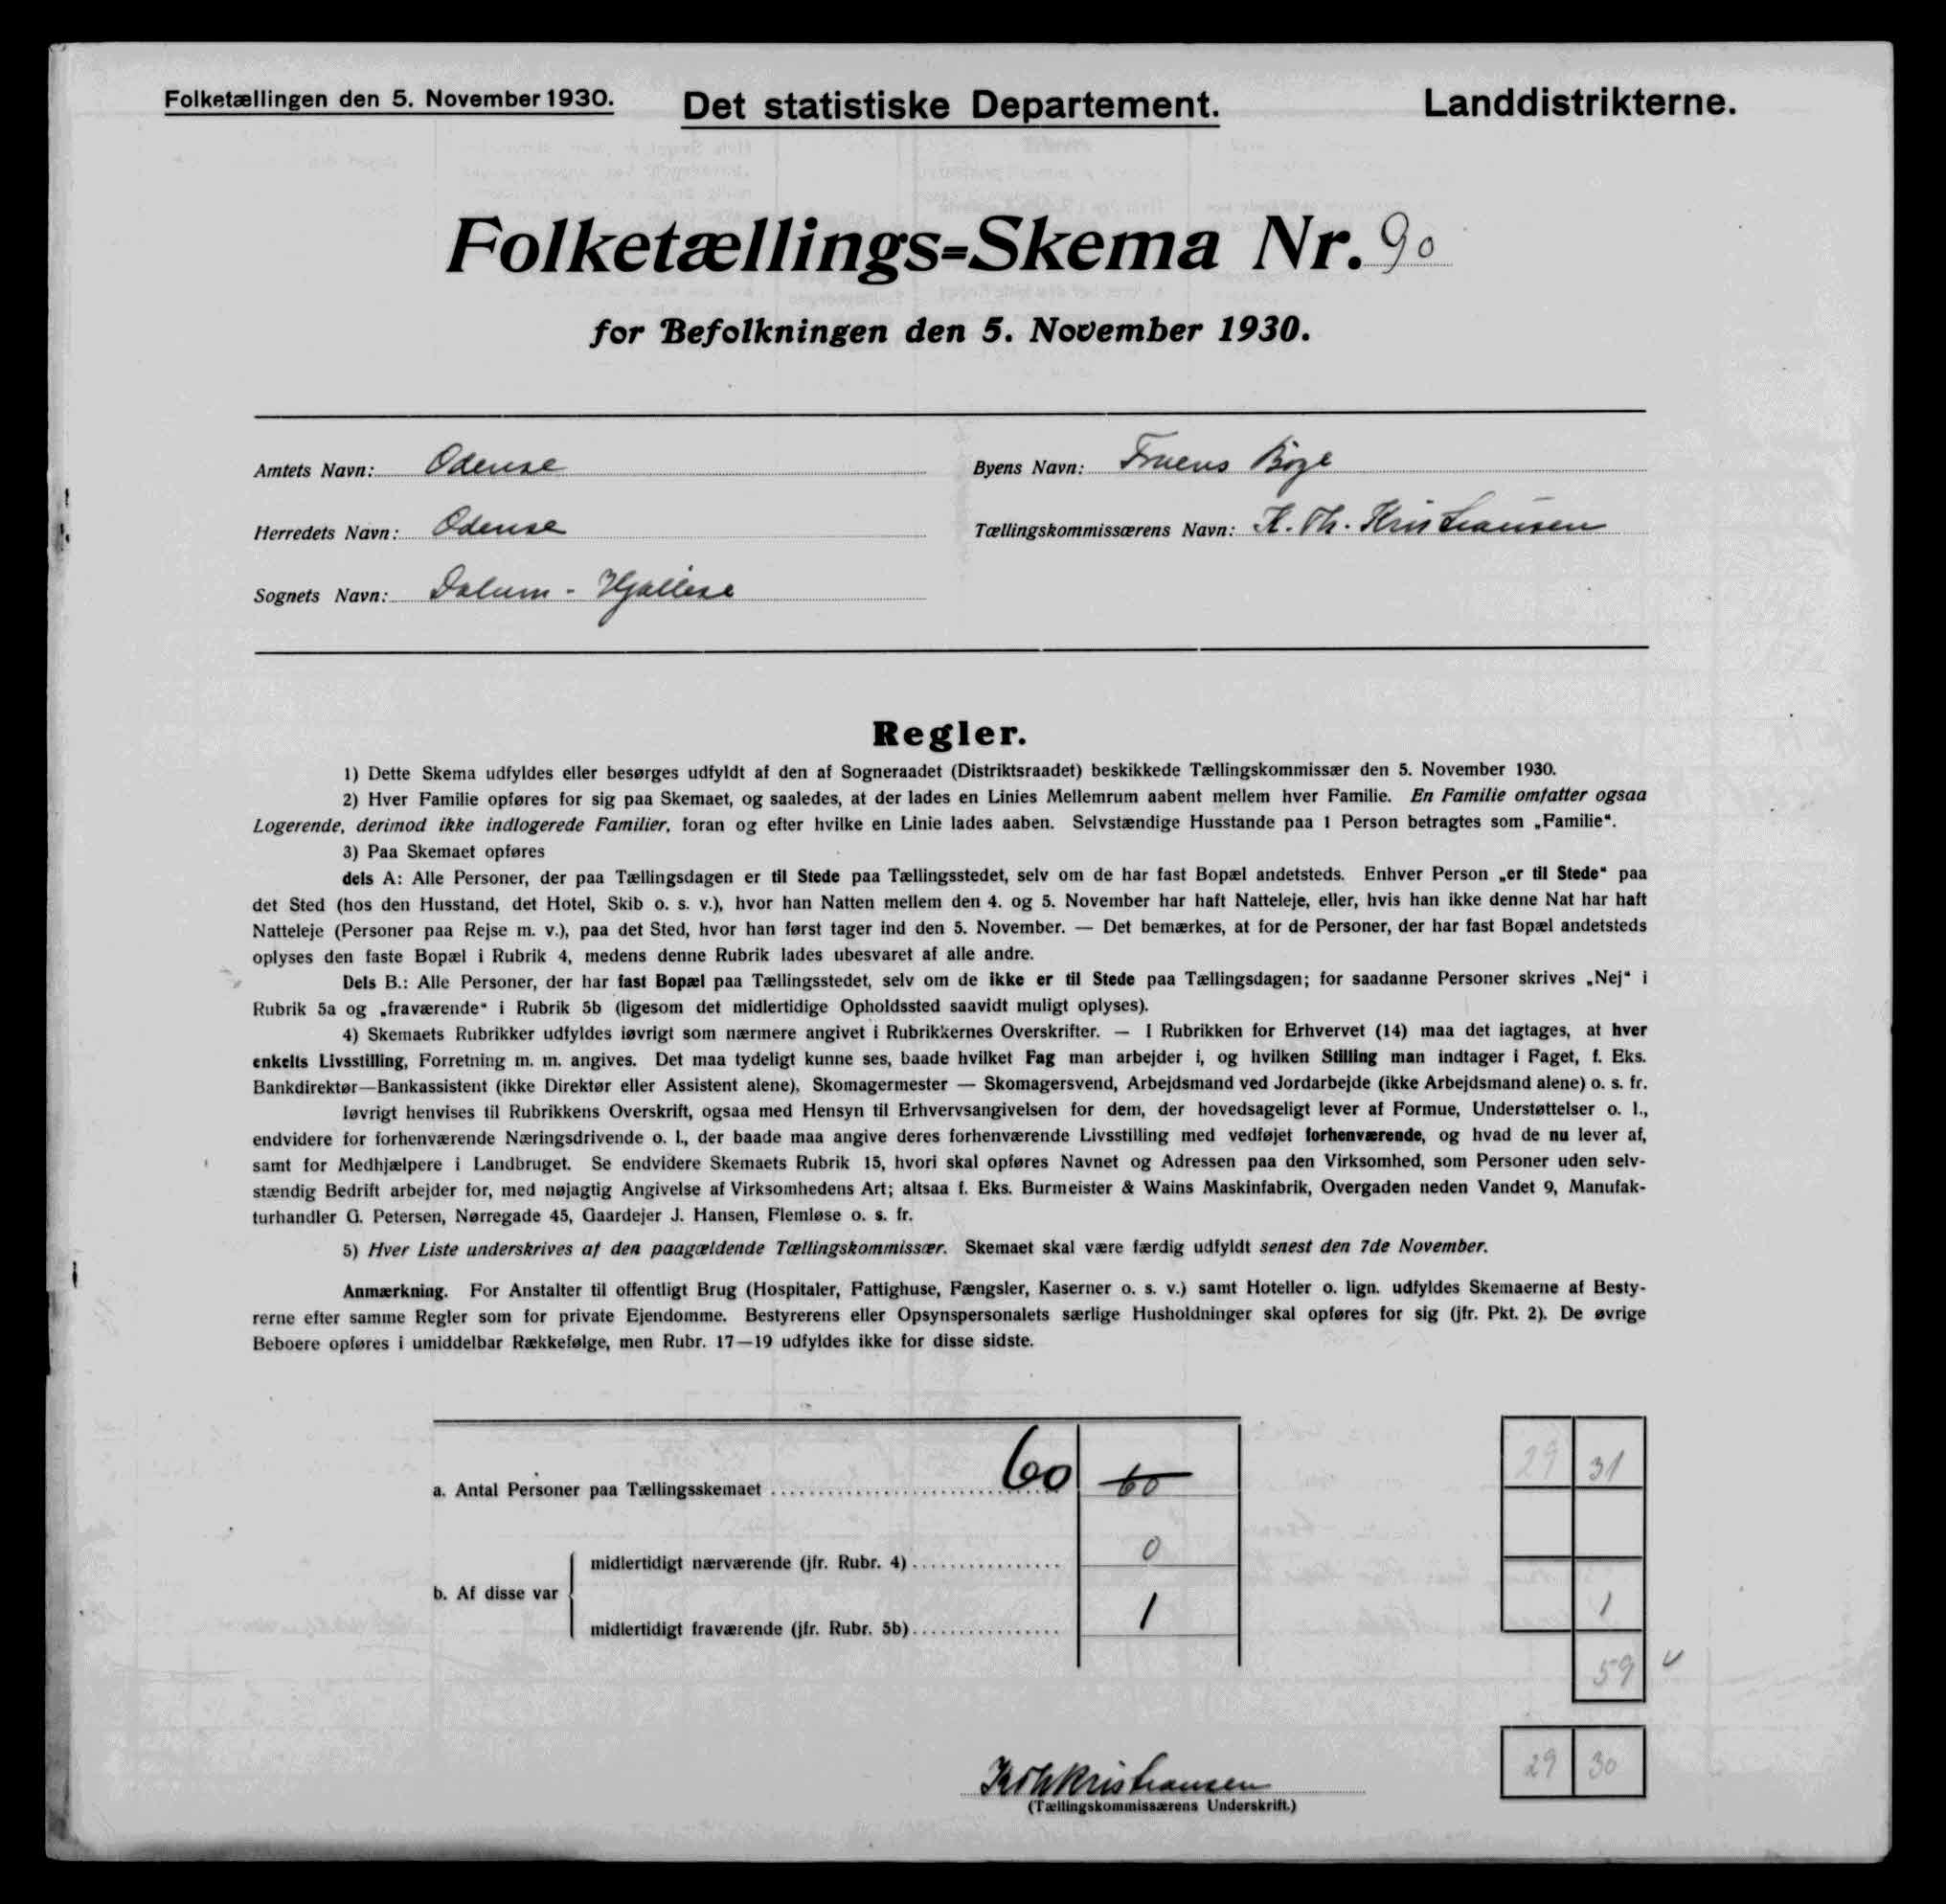 Folketællingen den 5. November 1930.
Det statistiske Departement.
Landdistrikterne.
Folketællings=Skema Nr. 90
for Befolkningen den 5. November 1930.
Amtets Navn: Odense
Byens Navn: Fruens Böge
Herredets Navn: Odense
Tællingskommissærens Navn: K. Th. Kristiansen
Sognets Navn: Dalum - Hjallese
Regler.
1) Dette Skema udfyldes eller besørges udfyldt af den af Sogneraadet (Distriktsraadet) beskikkede Tællingskommissær den 5. November 1930.
2) Hver Familie opføres for sig paa Skemaet, og saaledes, at der lades en Linies Mellemrum aabent mellem hver Familie. En Familie omfatter ogsaa
Logerende, derimod ikke indlogerede Familier, foran og efter hvilke en Linie lades aaben. Selvstændige Husstande paa 1 Person betragtes som „Familie“.
3) Paa Skemaet opføres
dels A: Alle Personer, der paa Tællingsdagen er til Stede paa Tællingsstedet, selv om de har fast Bopæl andetsteds. Enhver Person „er til Stede“ paa
det Sted (hos den Husstand, det Hotel, Skib o. s. v.), hvor han Natten mellem den 4. og 5. November har haft Natteleje, eller, hvis han ikke denne Nat har haft
Natteleje (Personer paa Rejse m. v.), paa det Sted, hvor han først tager ind den 5. November. — Det bemærkes, at for de Personer, der har fast Bopæl andetsteds
oplyses den faste Bopæl i Rubrik 4, medens denne Rubrik lades ubesvaret af alle andre.
Dels B.: Alle Personer, der har fast Bopæl paa Tællingsstedet, selv om de ikke er til Stede paa Tællingsdagen; for saadanne Personer skrives „Nej“ i
Rubrik 5a og „fraværende“ i Rubrik 5b (ligesom det midlertidige Opholdssted saavidt muligt oplyses).
4) Skemaets Rubrikker udfyldes iøvrigt som nærmere angivet i Rubrikkernes Overskrifter. — I Rubrikken for Erhvervet (14) maa det iagtages, at hver
enkelts Livsstilling, Forretning m. m. angives. Det maa tydeligt kunne ses, baade hvilket Fag man arbejder i, og hvilken Stilling man indtager i Faget, f. Eks.
Bankdirektør—Bankassistent (ikke Direktør eller Assistent alene), Skomagermester — Skomagersvend, Arbejdsmand ved Jordarbejde (ikke Arbejdsmand alene) o. s. fr.
Iøvrigt henvises til Rubrikkens Overskrift, ogsaa med Hensyn til Erhvervsangivelsen for dem, der hovedsageligt lever af Formue, Understøttelser o. l.,
endvidere for forhenværende Næringsdrivende o. l., der baade maa angive deres forhenværende Livsstilling med vedføjet forhenværende, og hvad de nu lever af,
samt for Medhjælpere i Landbruget. Se endvidere Skemaets Rubrik 15, hvori skal opføres Navnet og Adressen paa den Virksomhed, som Personer uden selv-
stændig Bedrift arbejder for, med nøjagtig Angivelse af Virksomhedens Art; altsaa f. Eks. Burmeister & Wains Maskinfabrik, Overgaden neden Vandet 9, Manufak-
turhandler G. Petersen, Nørregade 45, Gaardejer J. Hansen, Flemløse o. s. fr.
5) Hver Liste underskrives af den paagældende Tællingskommissær. Skemaet skal være færdig udfyldt senest den 7de November.
Anmærkning. For Anstalter til offentligt Brug (Hospitaler, Fattighuse, Fængsler, Kaserner o. s. v.) samt Hoteller o. lign. udfyldes Skemaerne af Besty-
rerne efter samme Regler som for private Ejendomme. Bestyrerens eller Opsynspersonalets særlige Husholdninger skal opføres for sig (jfr. Pkt. 2). De øvrige
Beboere opføres i umiddelbar Rækkefølge, men Rubr. 17—19 udfyldes ikke for disse sidste.
a. Antal Personer paa Tællingsskemaet 60 60
29 31
midlertidigt nærværende (jfr. Rubr. 4) 0
b. Af disse var
midlertidigt fraværende (jfr. Rubr. 5b) 1
1
59
K Th Kristiansen
29 30
(Tællingskommissærens Underskrift.)